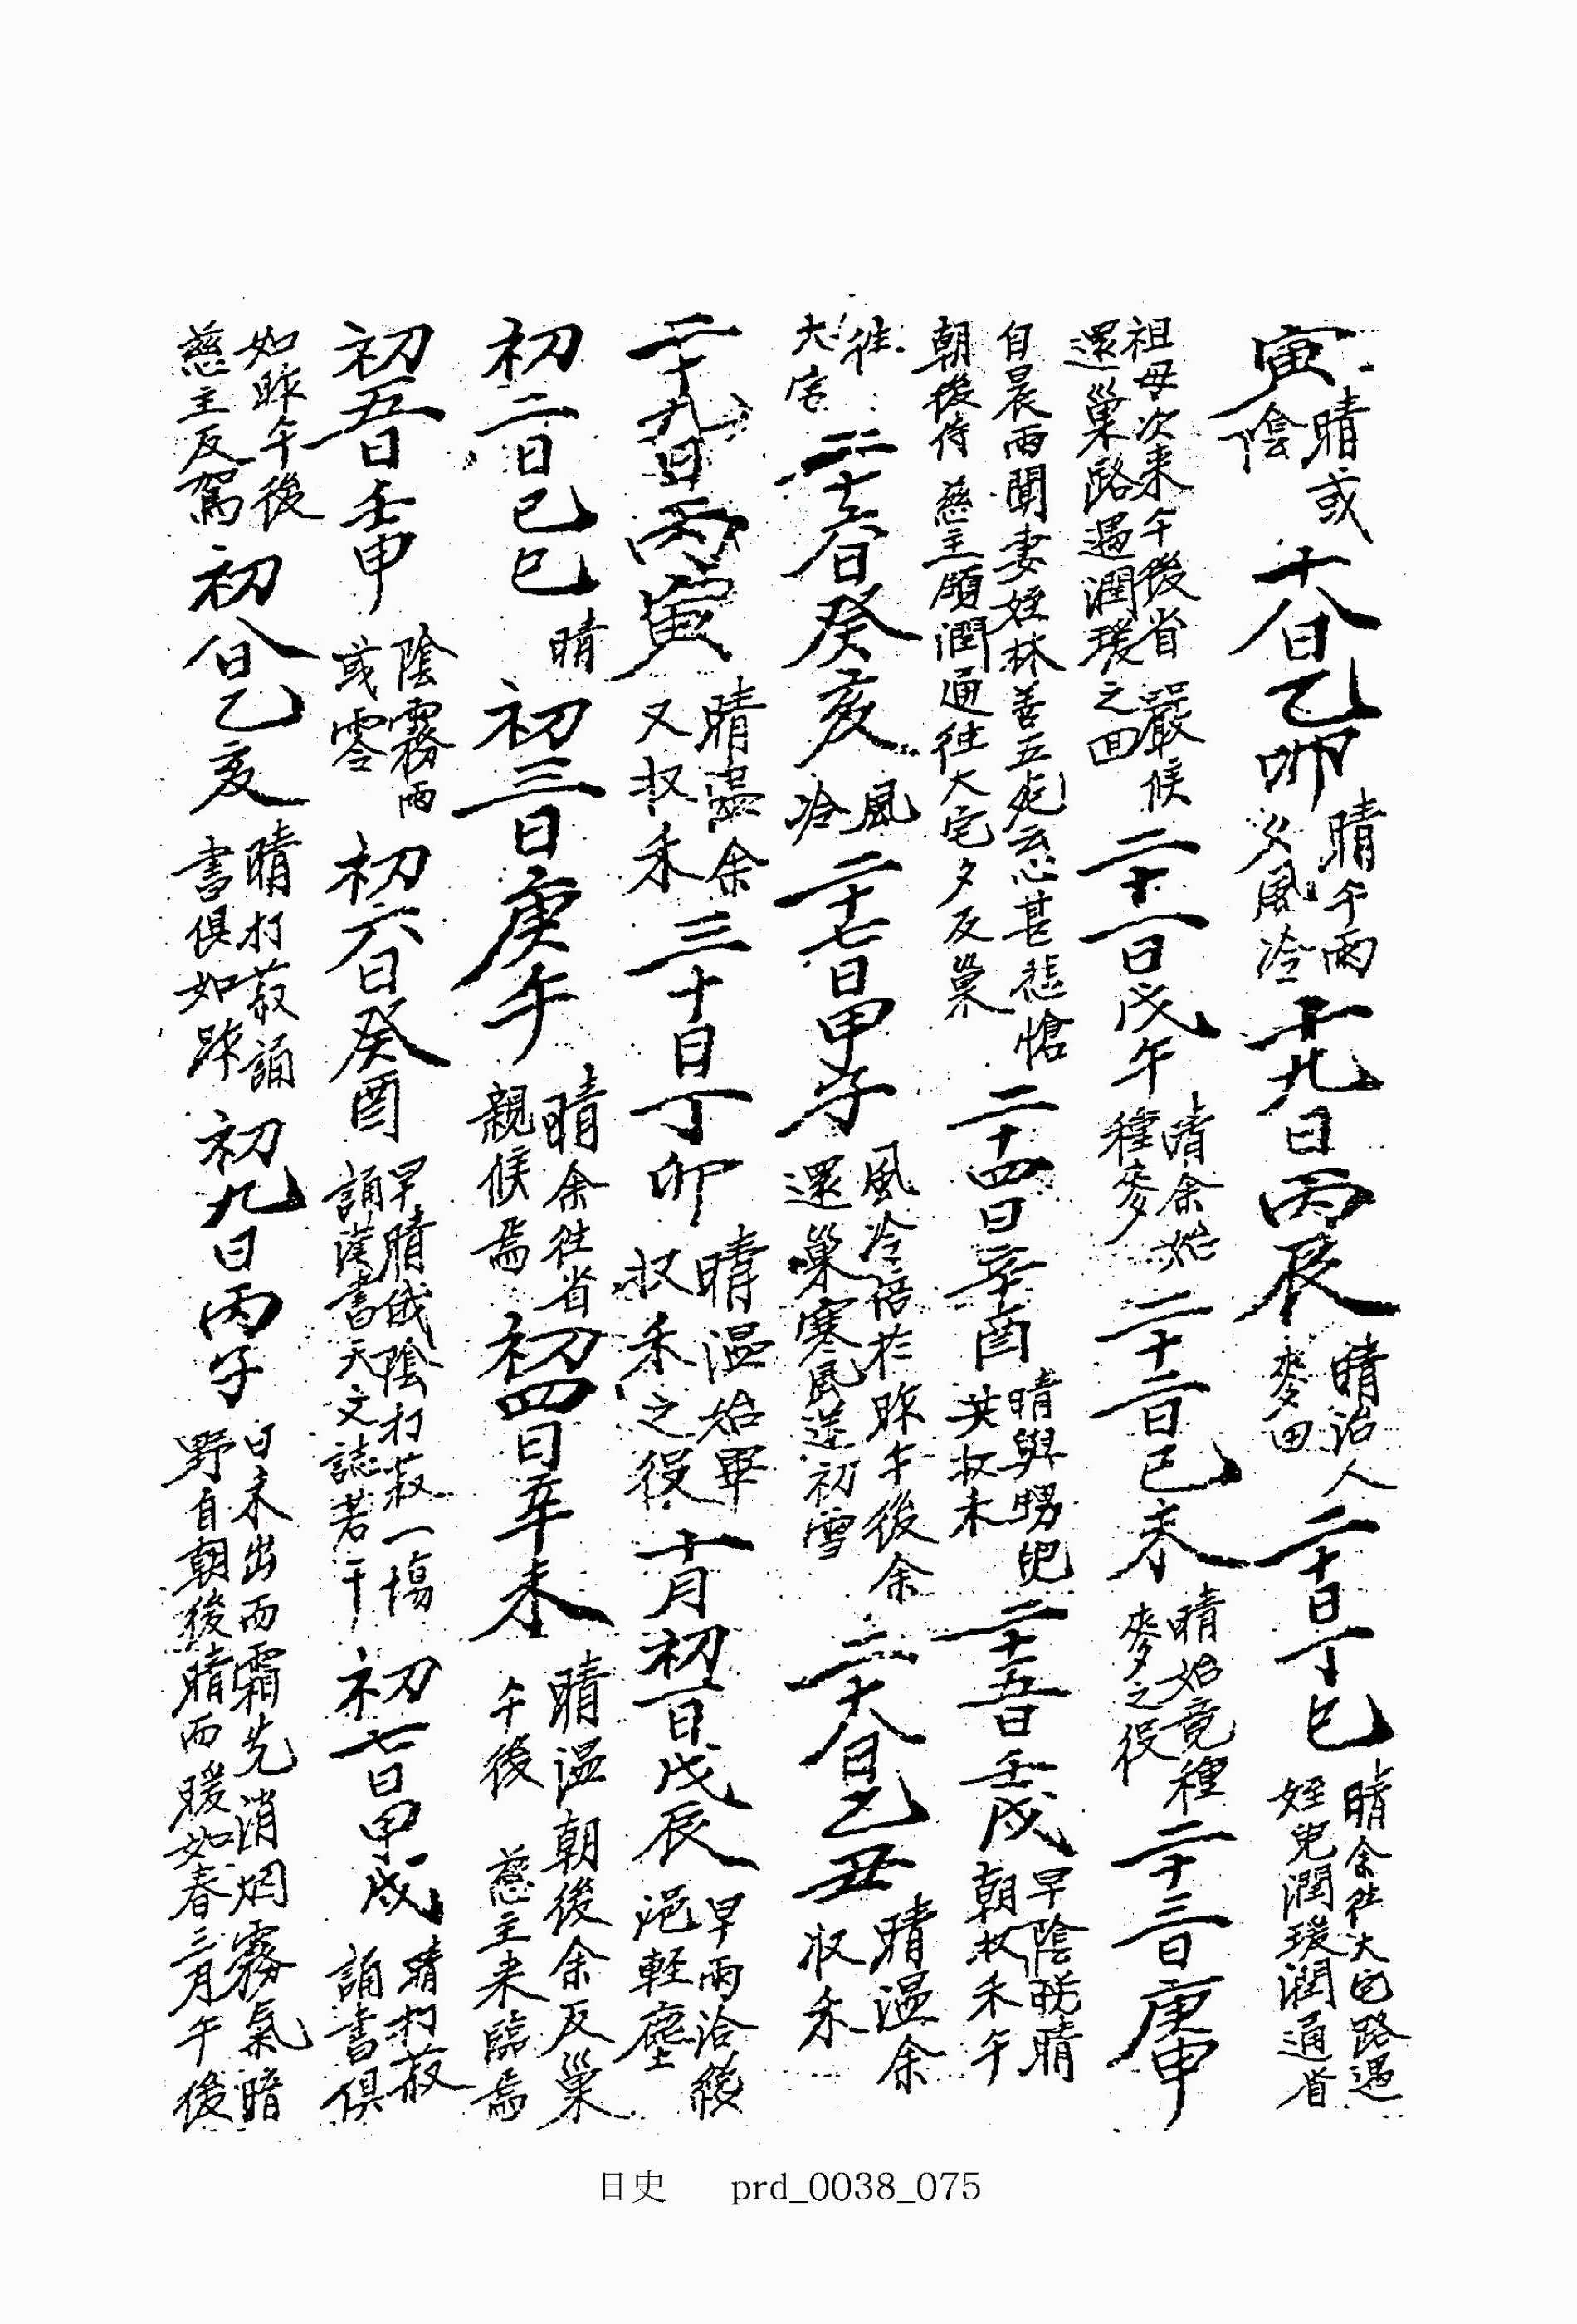 寅 晴或陰 十八日乙卯 晴午雨夕風冷 十九日丙辰 晴治人麥田 二十日丁巳 晴余往大宅路遇姪兒潤瑗潤通省
祖母次来午後省 嚴候還巢路遇潤瑗之回 二十一日戊午 晴余始種麥 二十二日己未 晴始竟種麥之役 二十三日庚申
自晨雨聞妻姪林善五死云心甚悲愴朝後侍 慈主領潤通往大宅夕反巢 二十四日辛酉 晴與甥兒共収禾 二十五日壬戌 早陰晩晴朝収禾午
往大宅 二十六日癸亥 風冷 二十七日甲子 風冷倍於昨午後余還巢寒風送初雪 二十八日乙丑 晴溫余収禾
二十九日丙寅 晴溫余又収禾 三十日丁卯 晴溫始畢収禾之役 十月初一日戊辰 早雨洽纔浥輕塵
初二日己巳 晴 初三日庚午 晴余往省親候焉 初四日辛未 晴溫朝後余反巢午後 慈主来臨焉
初五日壬申 陰霧雨或零 初六日癸酉 早晴俄陰打菽一場誦漢書天文誌若干 初七日甲戌 晴打菽誦書俱
如昨午後慈主反駕 初八日乙亥 晴打菽誦書俱如昨 初九日丙子 日未出而霜先消烟霧氣暗野自朝後晴而暖如春三月午後
日史 prd_0038_075